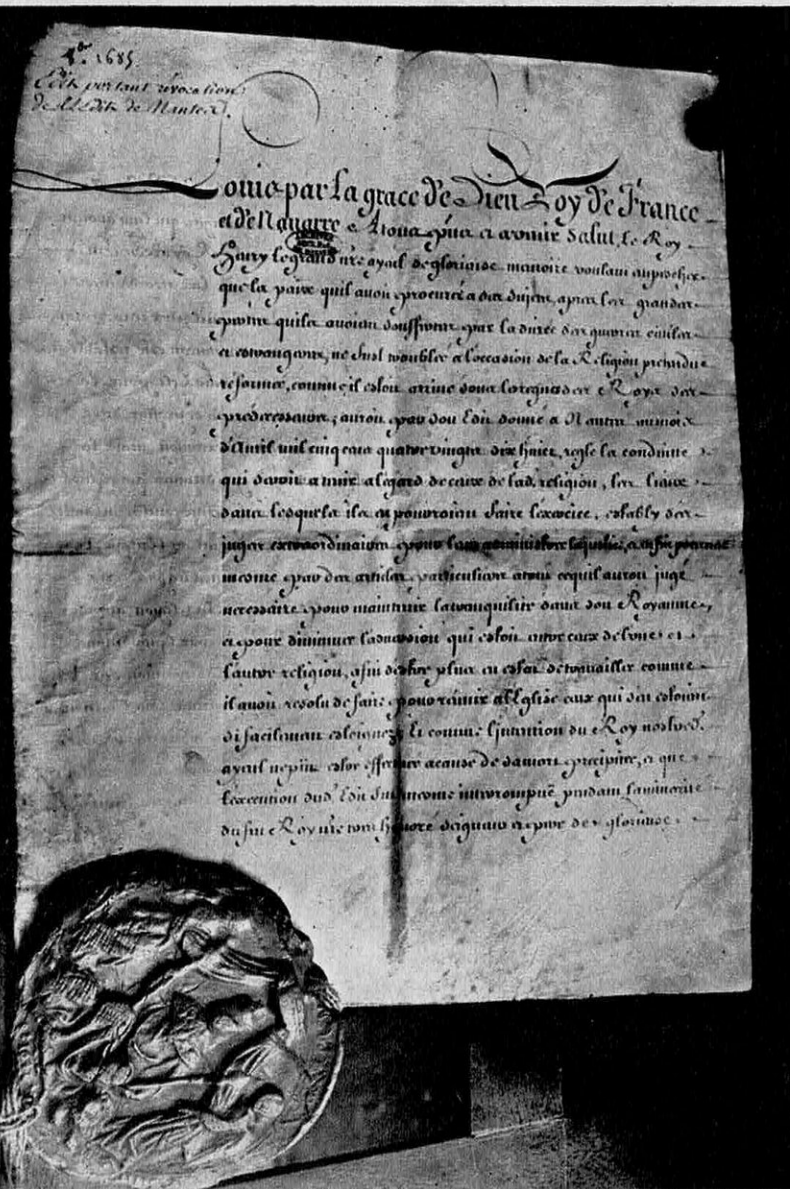 8bre 1685.
Edit portant révocation
de l'Edit de Nantes.
Louis par la grace de Dieu Roy de France
et de Navarre A tous pns et avenir Salut, le Roy
Henry le grand nre ayeul de glorieuse memoire voulant empescher
que la paix quil avoit procurée a ses Sujets, apres les grandes
pertes quils avoient Souffertes par la durée des guerres civiles
et estrangeres, ne fust troublée a l'occasion de la Religion pretendue
reformée, comme il estoit arrivé sous les regnes des Roys ses
predecesseurs, auroit par son Edit donné a Nantes au mois
d'Avril mil cinq cens quatre vingts dix huict, reglé la conduite
qui devoit a l'egard de ceux de lad. religion, les lieux
dans lesquels ils en pouroient faire l'exercice, estably des
juges extraordinaires pour leur administrer la justice, et enfin pourveu
mesme par des articles particuliers a tout ce quil auroit jugé
necessaire pour maintenir la tranquilité dans son Royaume,
et pour diminuer l'aversion qui estoit entre ceux de l'une et
l'autre religion, afin d'estre plus en estat de travailler comme
il avoit resolu de faire pour reunir a l'Eglise ceux qui s'en estoient
si facilement esloignez Et comme l'intention du Roy nostred.
ayeul ne put estre effectuée a cause de sa mort precipitée, et que
l'execution dud. Edit fut mesme interrompuë pendant la minorité
du feu Roy nre tres honoré seigneur et pere de glorieuse